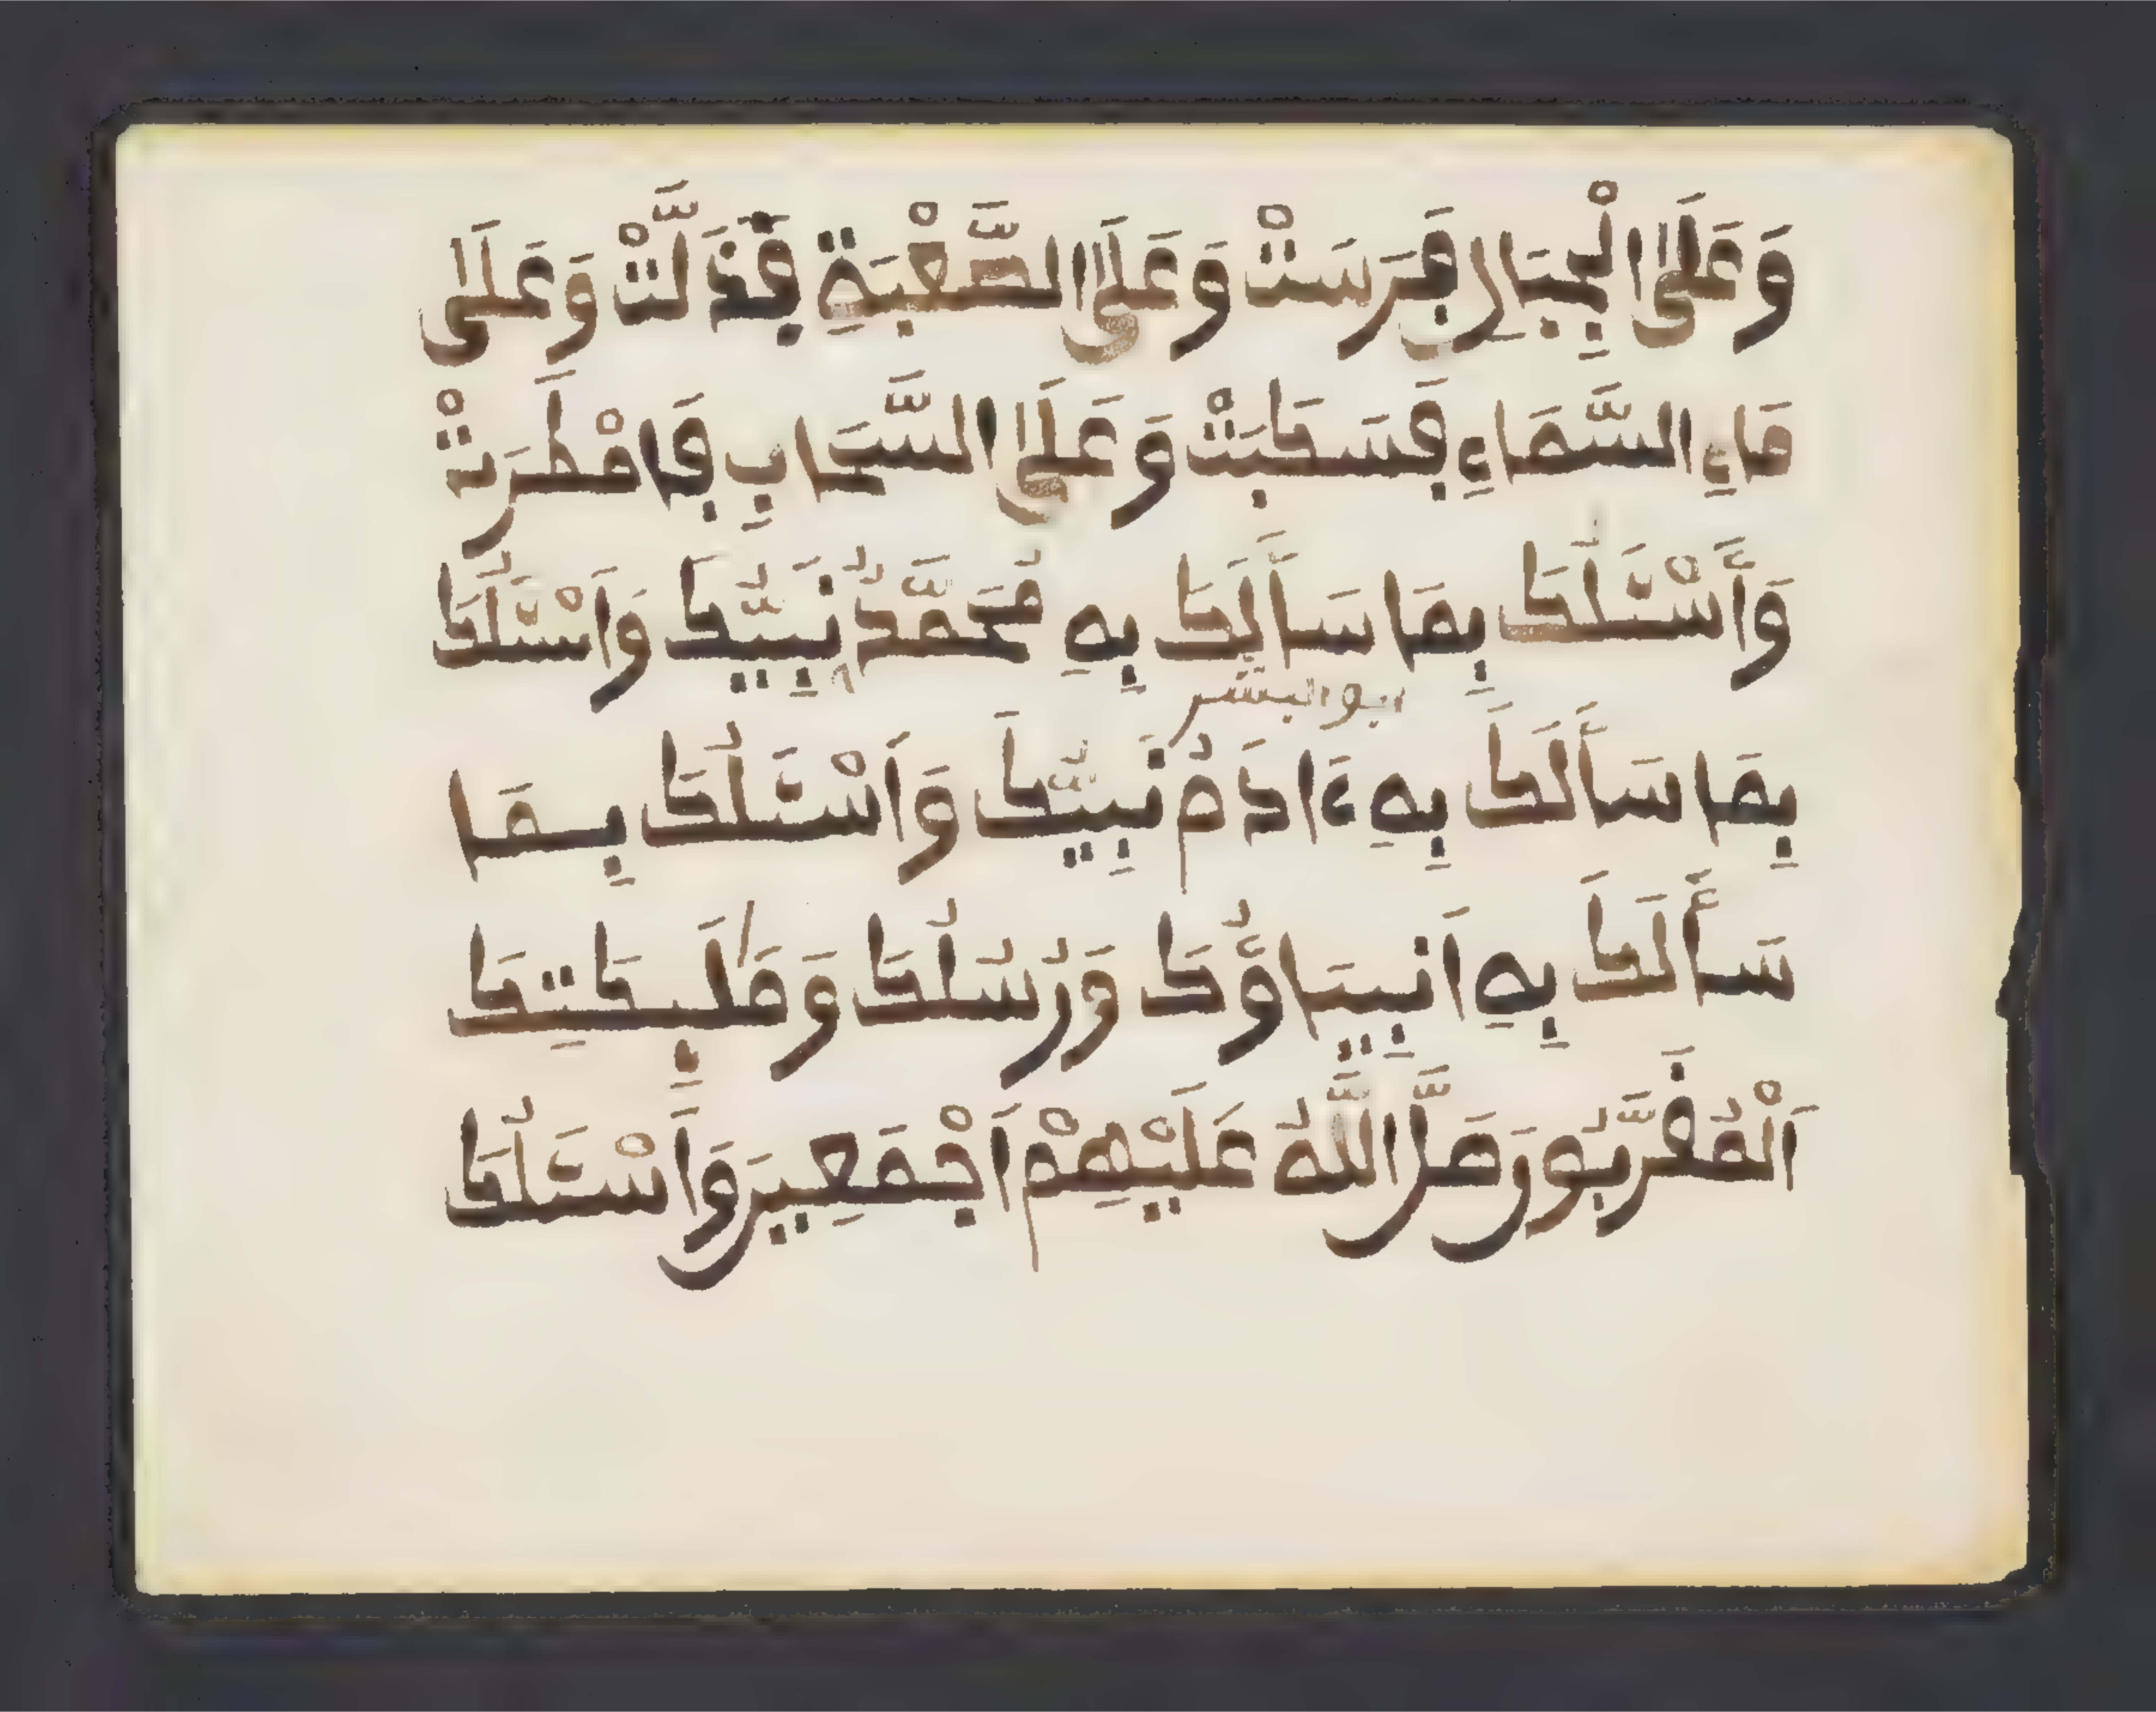 وَعَلَى الْجِبَالِ فَرَسَتْ وَعَلَى الصَّعْبَةِ فَذَلَّتْ وَعَلَى
مَاءِ السَّمَاءِ فَسَكَبَتْ وَعَلَى السَّحَابِ فَامْطَرَتْ
وَأَسْئَلُكَ بِمَا سَأَلَكَ بِهِ مُحَمَّدٌ نَبِيُّكَ وَاَسْئَلُكَ
ابو البشر
بِمَا سَأَلَكَ بِهِ ءَادَمُ نَبِيُّكَ وَاَسْئَلُكَ بِمَا
سَأَلَكَ بِهِ اَنبِيَاؤُكَ وَرُسُلُكَ وَمَلَٰئِكَتِكَ
اَلْمُقَرَّبُونَ صَلَّى اللَّهُ عَلَيْهِمْ اَجْمَعِينَ وَاَسْئَلُكَ